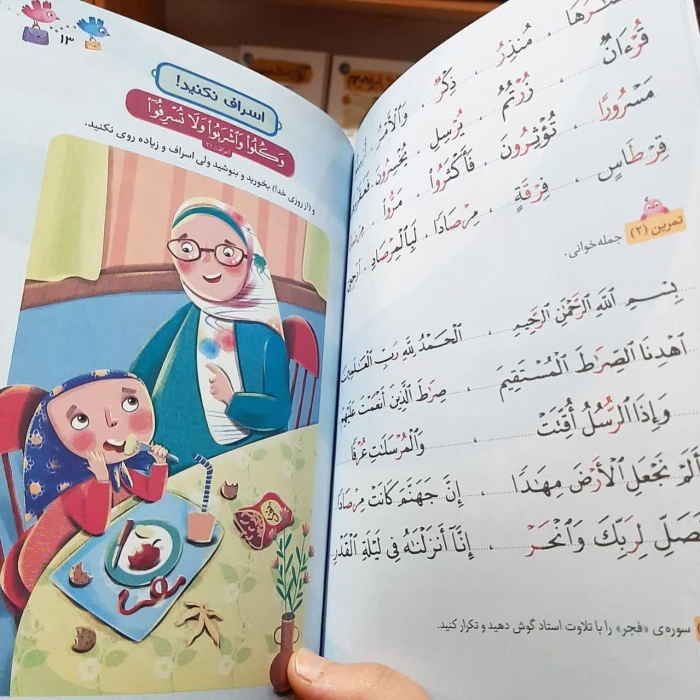 ۱۳
اسراف نکنید!
وَكُلُوا۟ وَٱشْرَبُوا۟ وَلَا تُسْرِفُوٓا۟
اعراف/ ۳۱
و (از روزی خدا) بخورید و بنوشید ولی اسراف و زیاده روی نکنید.
مُنذِرُ
قُرْءَانٌ ، زُرْتُمُ ، ذِكْرٌ ، وَٱلْأَمْرُ
مَسْرُورًا ، تُؤْثِرُونَ ، يُرْسِلِ ، يُخْسِرُونَ
قِرْطَاسٍ ، فِرْقَةٍ ، فَأَكْثَرُوا۟ ، مَرُّوا۟
مِرْصَادًا ، لَبِٱلْمِرْصَادِ
تمرین (۲) جمله‌خوانی.
بِسْمِ ٱللَّهِ ٱلرَّحْمَٰنِ ٱلرَّحِيمِ ، ٱلْحَمْدُ لِلَّهِ رَبِّ ٱلْعَٰلَمِينَ
ٱهْدِنَا ٱلصِّرَٰطَ ٱلْمُسْتَقِيمَ ، صِرَٰطَ ٱلَّذِينَ أَنْعَمْتَ عَلَيْهِمْ
وَإِذَا ٱلرُّسُلُ أُقِّتَتْ ، وَٱلْمُرْسَلَٰتِ عُرْفًا
أَلَمْ نَجْعَلِ ٱلْأَرْضَ مِهَٰدًا ، إِنَّ جَهَنَّمَ كَانَتْ مِرْصَادًا
فَصَلِّ لِرَبِّكَ وَٱنْحَرْ ، إِنَّآ أَنزَلْنَٰهُ فِى لَيْلَةِ ٱلْقَدْرِ
سوره‌ی «فجر» را با تلاوت استاد گوش دهید و تکرار کنید.